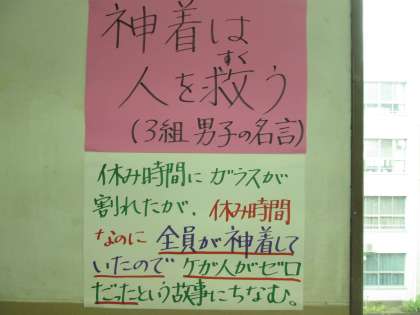 神着は
人を救う
すく
(3組 男子の名言)
休み時間に ガラスが
割れたが、休み時間
なのに 全員が神着して
いたので ケガ人がゼロ
だったという故事にちなむ。